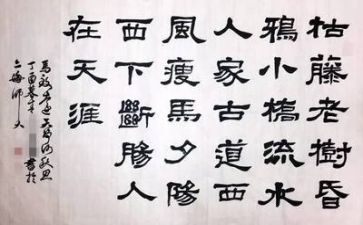 枯藤老樹昏
鴉小橋流水
人家古道西
風瘦馬夕陽
西下斷腸人
在天涯
馬致遠天淨沙秋思
丁酉 書於
上海師大